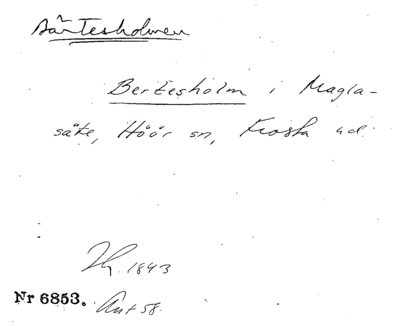 Bärtesholmen
Bertesholm i Magla-
säte, Höör sn, Frosta hd.
1843
Nr 6853. Ant 58.